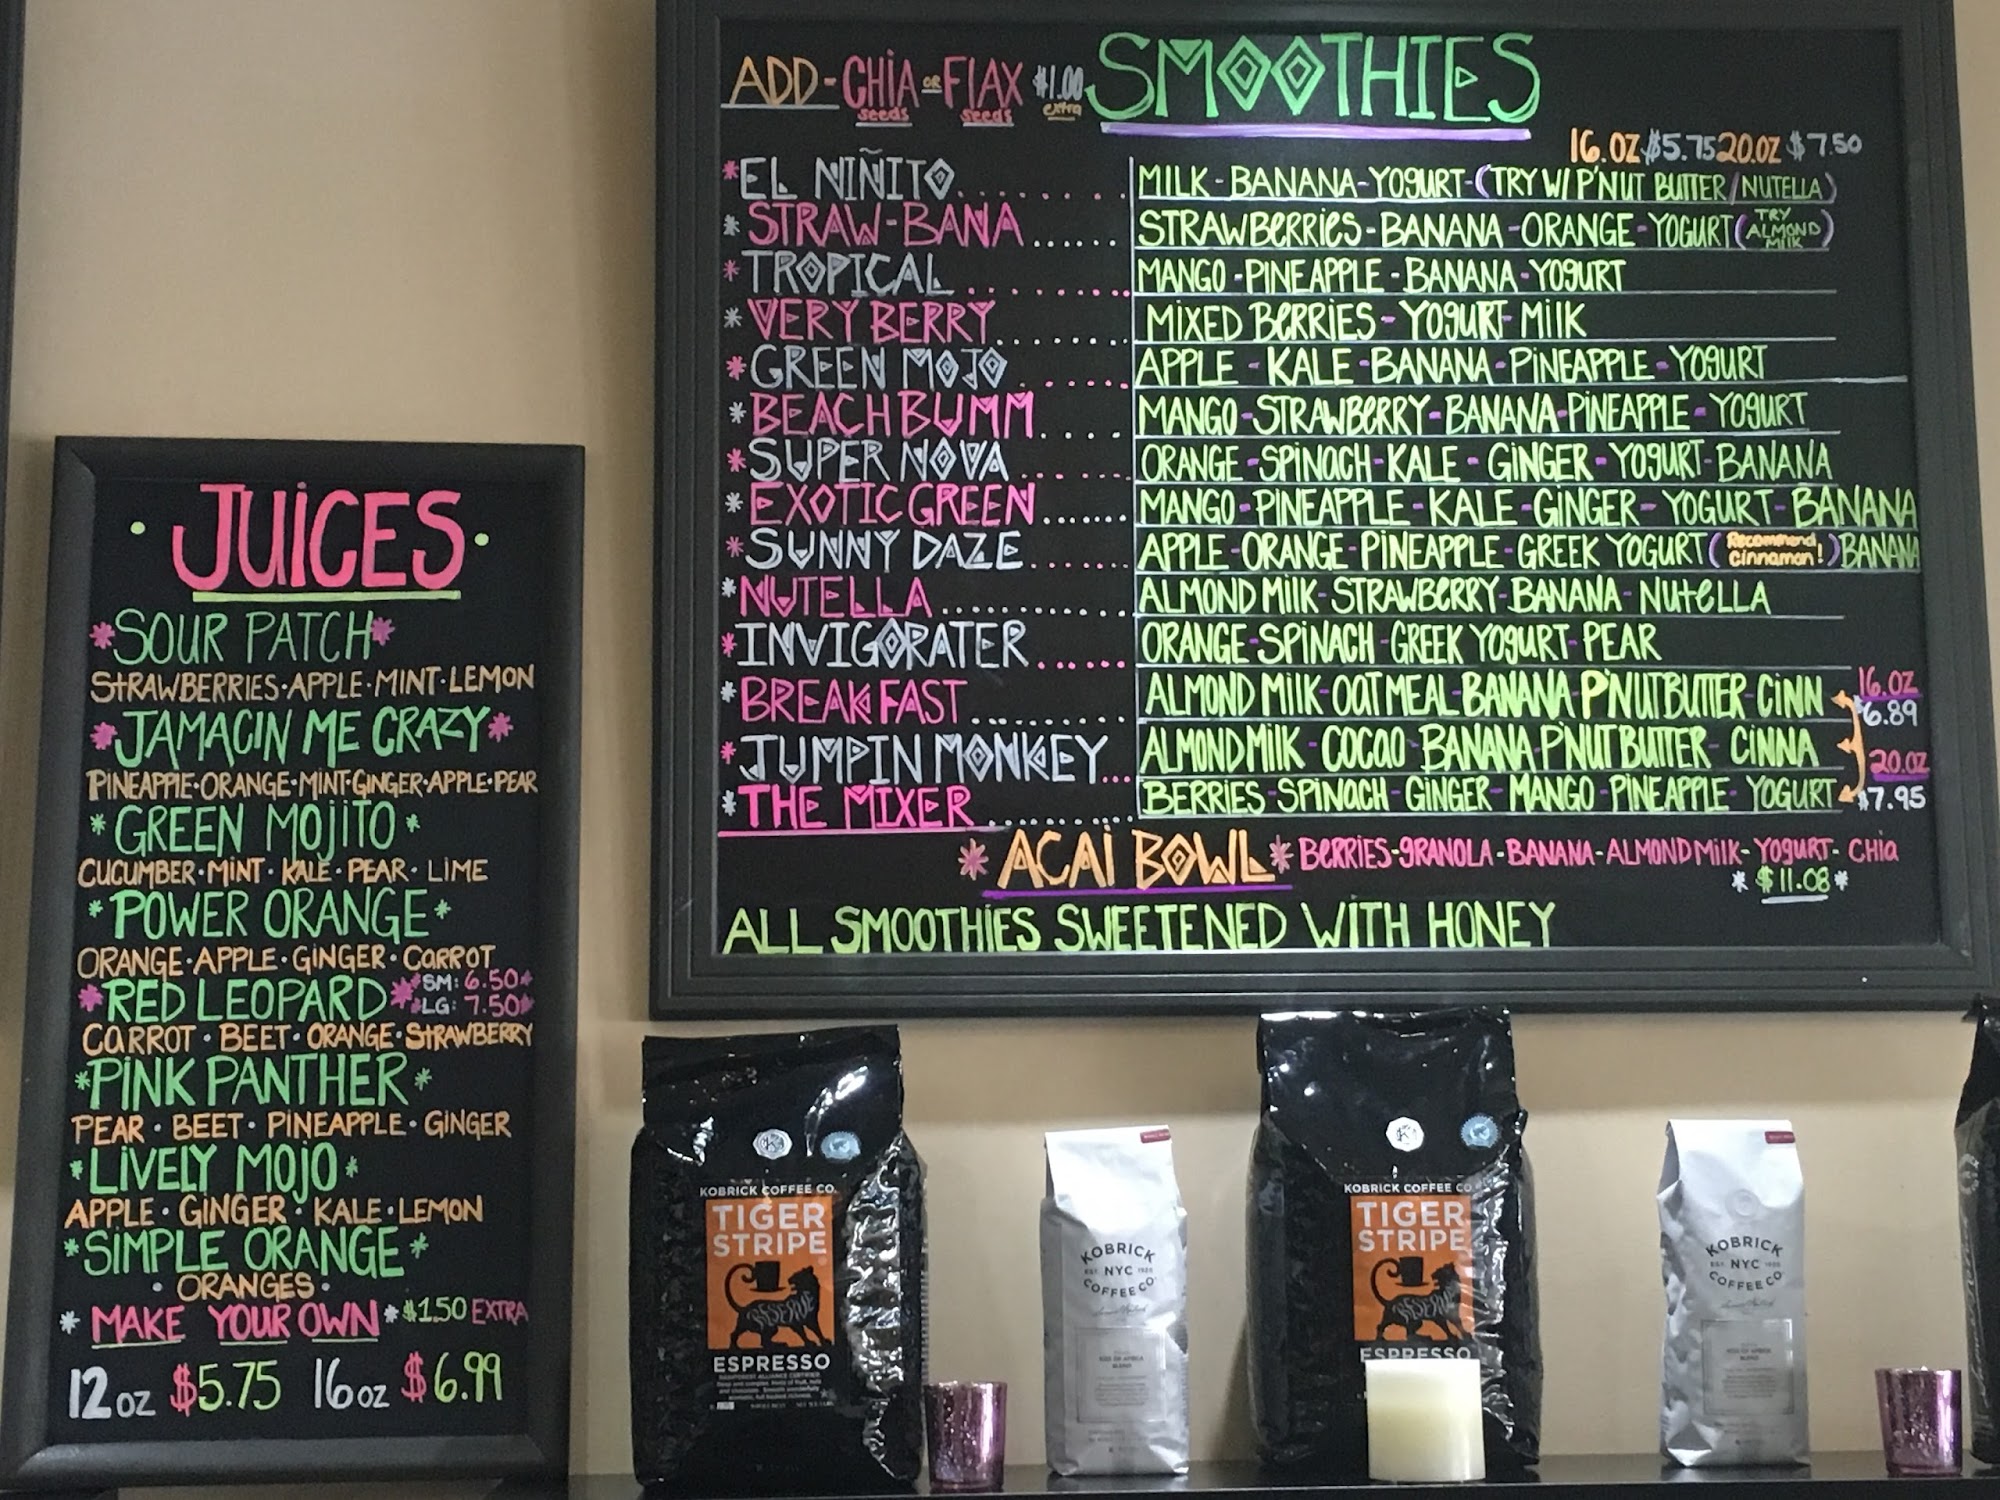 JUICES
*SOUR PATCH*
STRAWBERRIES·APPLE·MINT·LEMON
*JAMACIN ME CRAZY*
PINEAPPLE·ORANGE·MINT·GINGER·APPLE·PEAR
*GREEN MOJITO*
CUCUMBER·MINT·KALE·PEAR·LIME
*POWER ORANGE*
ORANGE·APPLE·GINGER·CARROT
*RED LEOPARD* SM: 6.50*
LG: 7.50*
CARROT·BEET·ORANGE·STRAWBERRY
*PINK PANTHER*
PEAR·BEET·PINEAPPLE·GINGER
*LIVELY MOJO*
APPLE·GINGER·KALE·LEMON
*SIMPLE ORANGE*
·ORANGES·
*MAKE YOUR OWN* $1.50 EXTRA
12 OZ $5.75 16 OZ $6.99
ADD-CHIA OR FLAX $1.00 SMOOTHIES
seeds seeds extra
16.OZ $5.75 20.OZ $7.50
*EL NIÑITO........ MILK-BANANA-YOGURT-(TRY W/ P'NUT BUTTER/NUTELLA)
*STRAW-BANA...... STRAWBERRIES-BANANA-ORANGE-YOGURT (TRY ALMOND MILK)
*TROPICAL........ MANGO-PINEAPPLE-BANANA-YOGURT
*VERY BERRY........ MIXED BERRIES-YOGURT-MILK
*GREEN MOJO...... APPLE-KALE-BANANA-PINEAPPLE-YOGURT
*BEACH BUMM.... MANGO-STRAWBERRY-BANANA-PINEAPPLE-YOGURT
*SUPER NOVA...... ORANGE-SPINACH-KALE-GINGER-YOGURT-BANANA
*EXOTIC GREEN...... MANGO-PINEAPPLE-KALE-GINGER-YOGURT-BANANA
*SUNNY DAZE...... APPLE-ORANGE-PINEAPPLE-GREEK YOGURT (Recommend Cinnamon!) BANANA
*NUTELLA.......... ALMOND MILK-STRAWBERRY-BANANA-NUTELLA
*INVIGORATER...... ORANGE-SPINACH-GREEK YOGURT-PEAR
*BREAKFAST........ ALMOND MILK-OATMEAL-BANANA-P'NUTBUTTER-CINN 16.OZ
$6.89
*JUMPIN MONKEY... ALMOND MILK-COCAO-BANANA-P'NUTBUTTER-CINNA
20.OZ
*THE MIXER....... BERRIES-SPINACH-GINGER-MANGO-PINEAPPLE-YOGURT $7.95
*ACAI BOWL* BERRIES-GRANOLA-BANANA-ALMOND MILK-YOGURT-CHIA
*$11.08*
ALL SMOOTHIES SWEETENED WITH HONEY
KOBRICK COFFEE CO.
TIGER
STRIPE
RESERVE
ESPRESSO
KOBRICK
EST. NYC 1920
COFFEE CO.
KOBRICK COFFEE CO.
TIGER
STRIPE
RESERVE
ESPRESSO
KOBRICK
EST. NYC 1920
COFFEE CO.